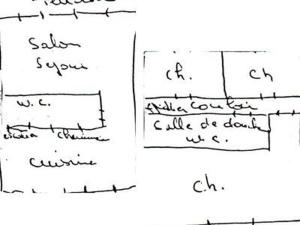 Salon
Sejour
w.c.
Cuisine
ch.
ch
Couloir
Salle de douche
w.c.
ch.